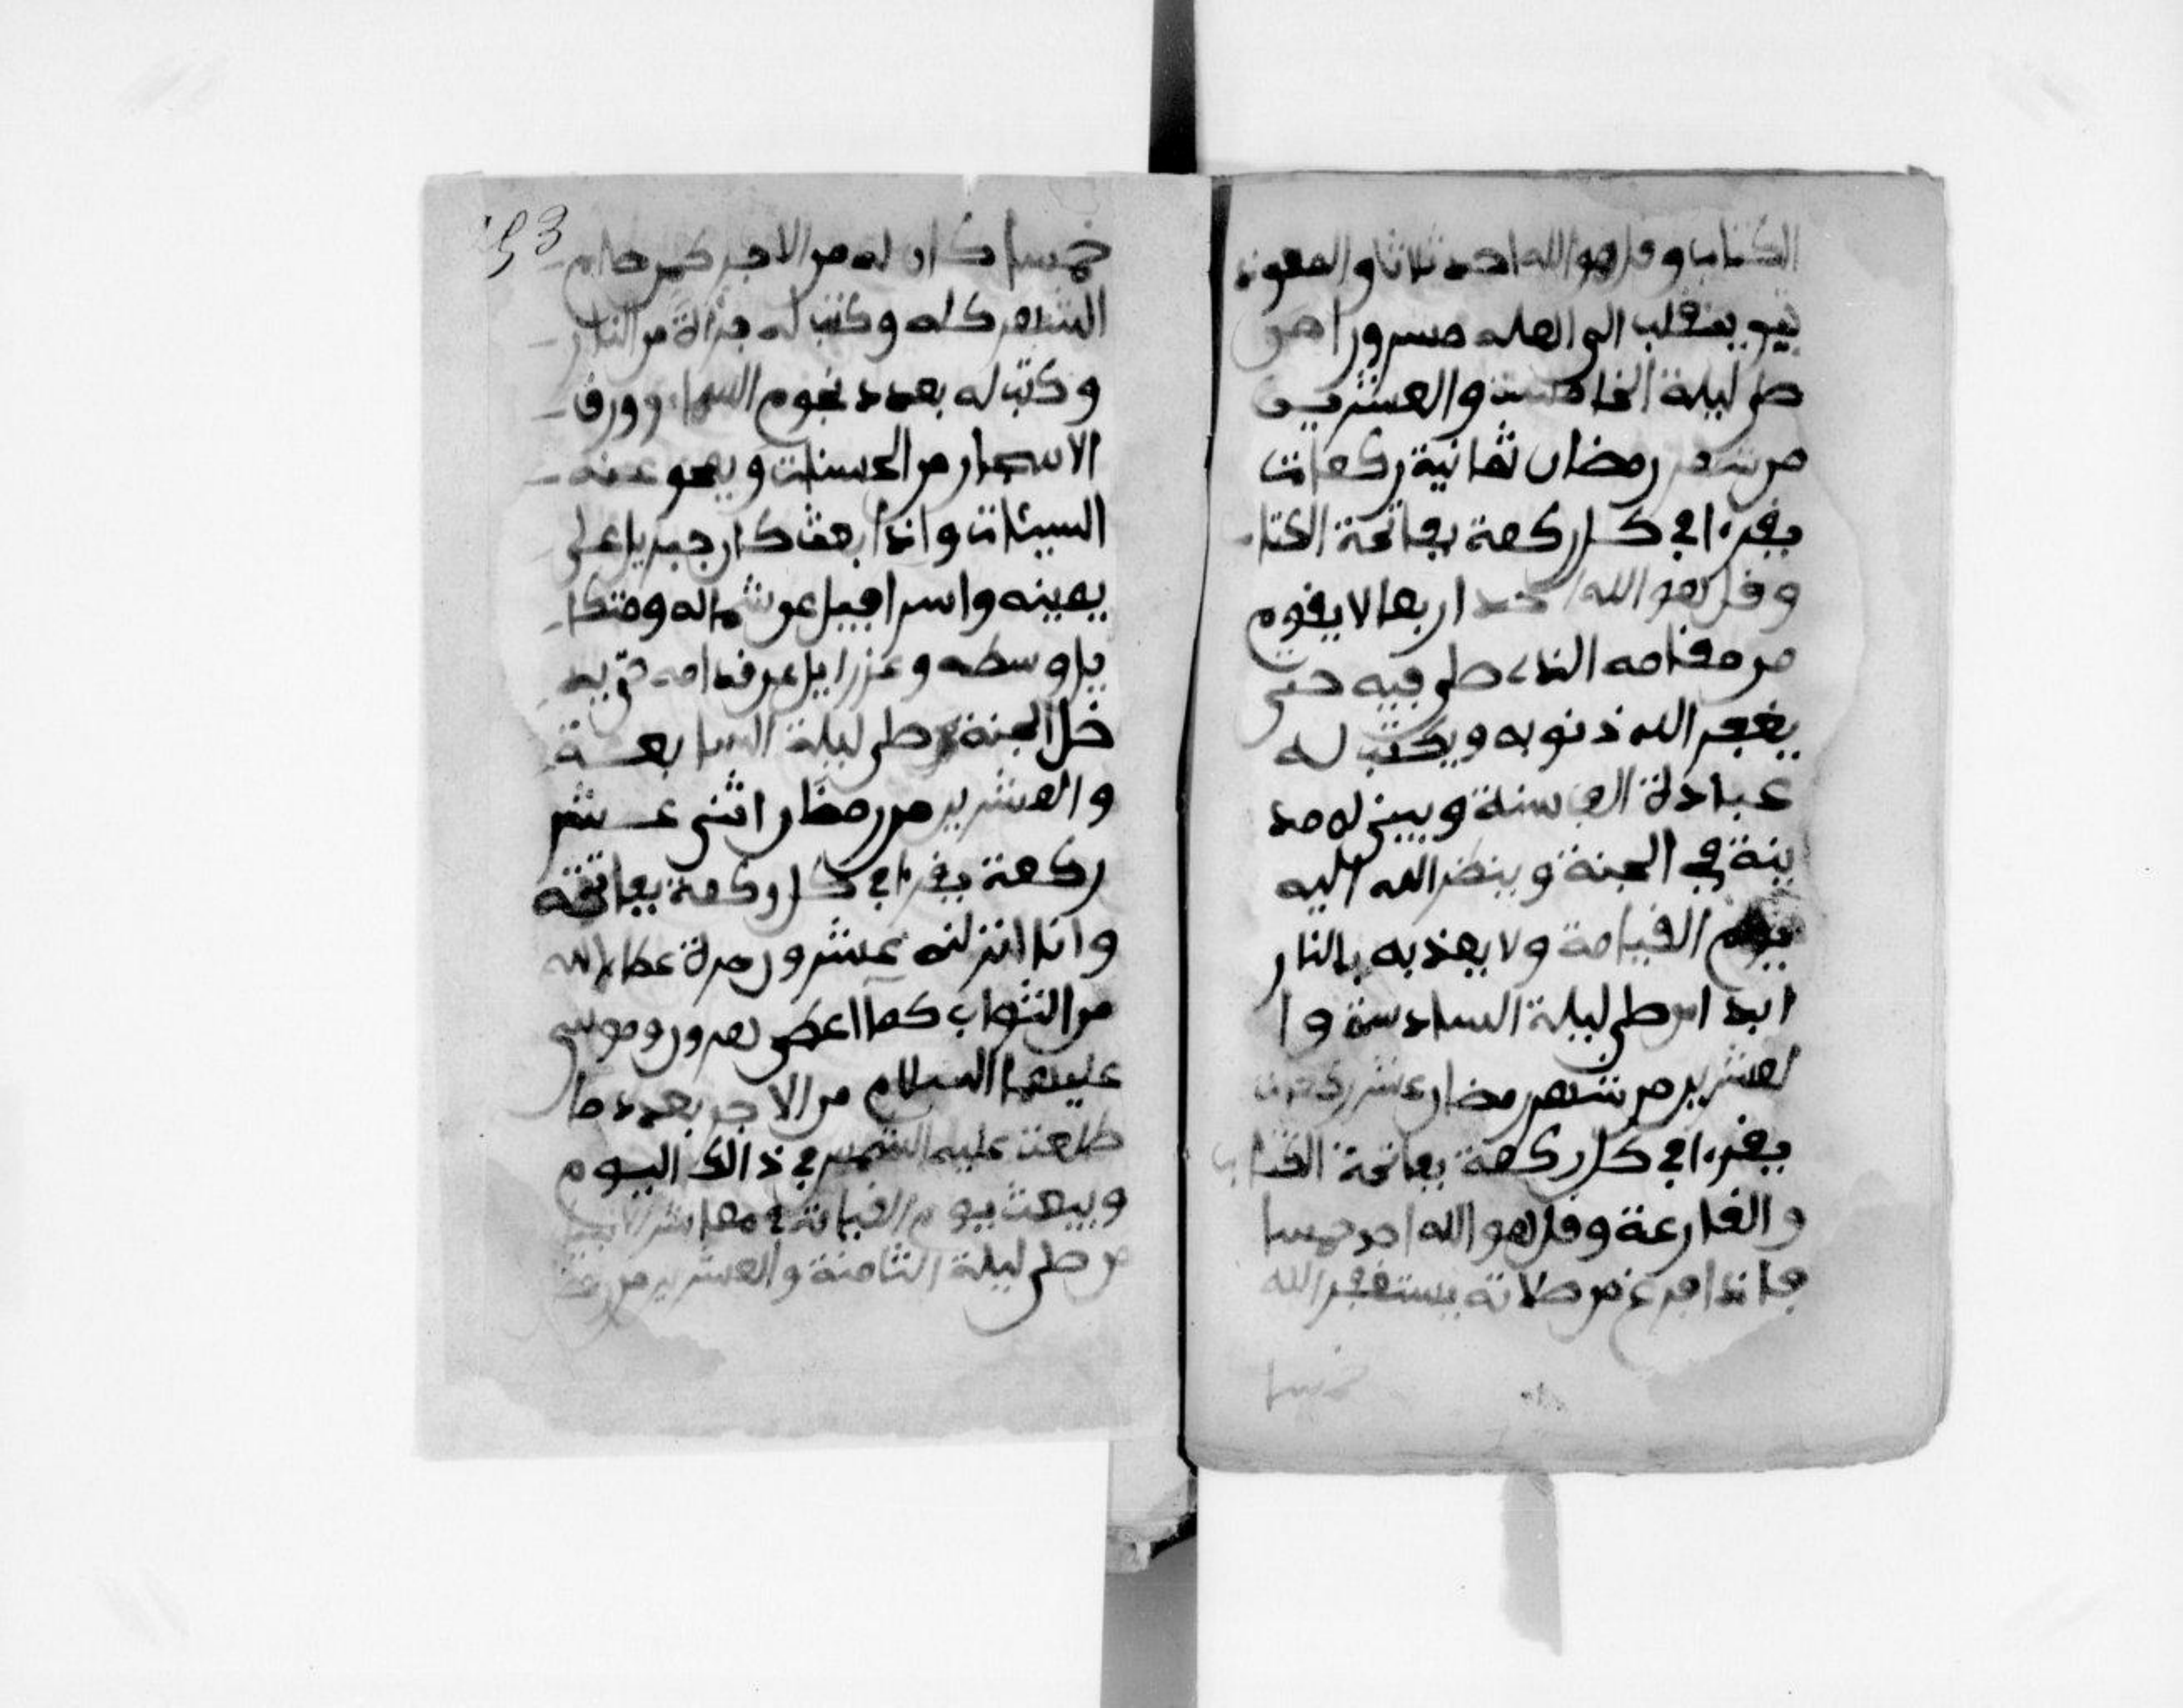 الكتاب وقل هو الله احد ثلاثا والمعوذ
تين ينقلب الى اهله مسرورا من
صلى ليلة الخامسة والعشرين
من شهر رمضان ثمانية ركعات
يقرء في كل ركعة بفاتحة الكتا
وقل هو الله احد اربعا لا يقوم
من مقامه الذي صلى فيه حتى
يغفر الله ذنوبه ويكتب له
عبادة الف سنة ويبنى له مد
ينة في الجنة وينظر الله اليه
يوم القيامة ولا يعذبه بالنار
ابدا من صلى ليلة السادسة وا
لعشرين من شهر رمضان عشر ركعات
يقرء في كل ركعة بفاتحة الكتاب
والقارعة وقل هو الله احد خمسا
فاذا فرغ من صلاته يستغفر الله
خمسا
153
خمسا كان له من الاجر كمن صام
الشهر كله وكتب له براة من النار
وكتب له بعدد نجوم السماء وورق
الاشجار من الحسنات ويمحو عنه
السيئات واذا بعث كان جبريل على
يمينه واسرافيل عن شماله وميكا
يل وسطه وعزرايل عن قدامه حتى يد
خل الجنة من صلى ليلة السابعة
والعشرين من رمضان اثنى عشر
ركعة يقرء في كل ركعة بفاتحة
وانا انزلنه عشرون مرة عطاه الله
من الثواب كما اعطى هرون وموسى
عليهما السلام من الاجر بعدد ما
طلعت عليه الشمس في ذالك اليوم
ويبعث يوم القيامة في معاشر الانبيا
من صلى ليلة الثامنة والعشرين من رمضا